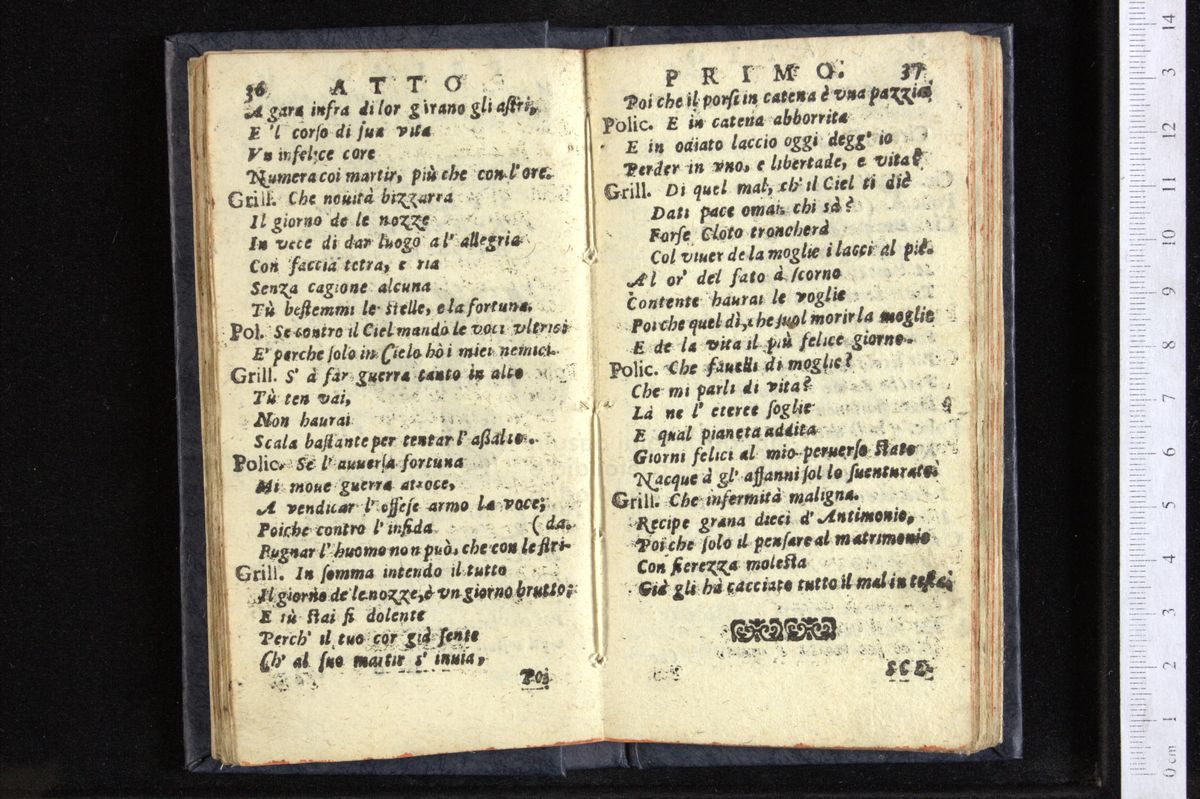 36 ATTO
A gara infra di lor girano gli astri,
E 'l corso di sua vita
Vn infelice core
Numera coi martir, più che con l'ore.
Grill. Che nouità bizzarra
Il giorno de le nozze
In vece di dar luogo a l' allegria
Con faccia tetra, e ria
Senza cagione alcuna
Tù bestemmi le stelle, e la fortuna.
Pol. Se contro il Ciel mando le voci vltrici
E' perche solo in Cielo hò i miei nemici.
Grill. S' à far guerra tanto in alto
Tù ten vai,
Non haurai
Scala bastante per tentar l' assalto.
Polic. Se l' auuersa fortuna
Mi moue guerra atroce,
A vendicar l' offese armo la voce;
Poiche contro l' infida (da.
Pugnar l' huomo non può, che con le stri-
Grill. In somma intendo il tutto
Il giorno de le nozze, è vn giorno brutto;
E tù stai sì dolente
Perch' il tuo cor già sente
Ch' al suo martir s' inuia,
Poi
PRIMO. 37
Poi che il porsi in catena è vna pazzia.
Polic. E in catena abborrita
E in odiato laccio oggi degg' io
Perder in vno, e libertade, e vita?
Grill. Di quel mal, ch' il Ciel ti diè
Dati pace omai, chi sà?
Forse Cloto troncherà
Col viuer de la moglie i lacci al piè.
Al or' del fato à scorno
Contente haurai le voglie
Poi che quel dì, che suol morir la moglie
E de la vita il più felice giorno.
Polic. Che fauelli di moglie?
Che mi parli di vita?
Là ne l' eteree soglie
E qual pianeta addita
Giorni felici al mio peruerso stato
Nacque à gl' affanni sol lo suenturato.
Grill. Che infermità maligna.
Recipe grana dieci d' Antimonio,
Poi che solo il pensare al matrimonio
Con fierezza molesta
Già gli hà cacciato tutto il mal in testa.
SCE-
14
3
12
11
10
9
8
7
6
5
4
3
2
1
0 cm